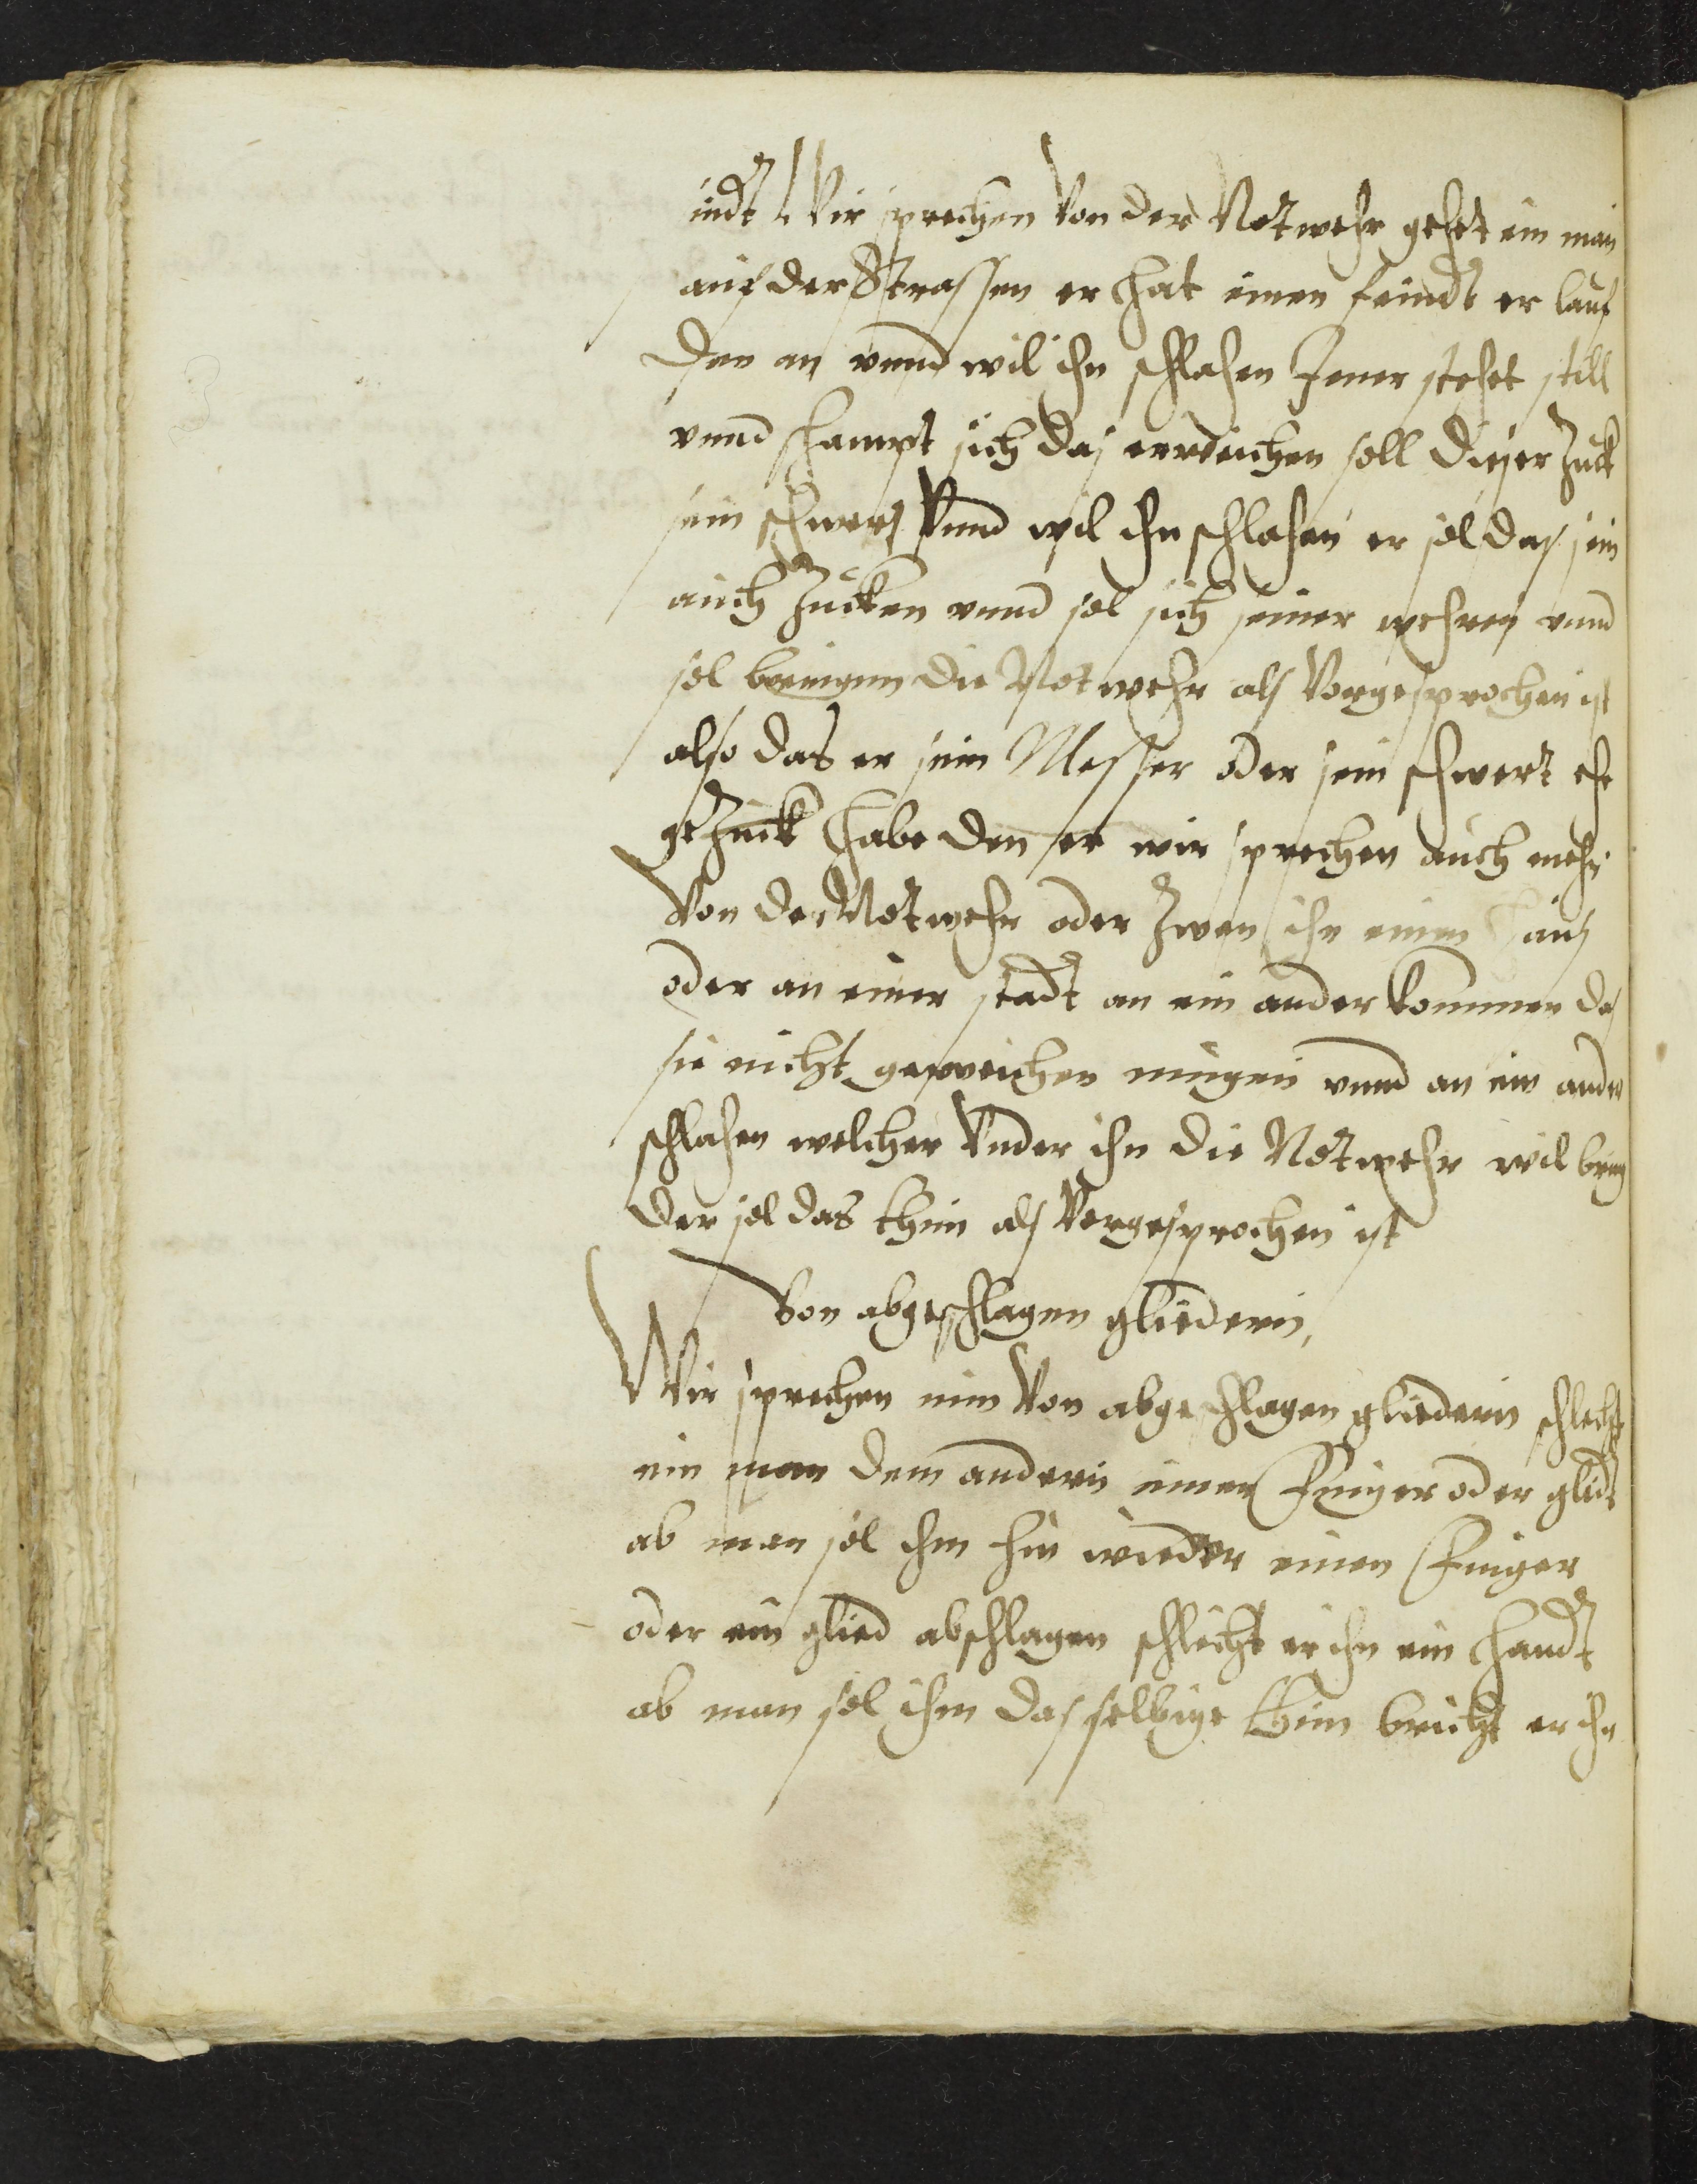 indt Wir sprechen Von der Notwehr gehet ein man
auf der Strassen er hat einen feindt er lauf
den an vnnd wil ihn schlahen Jener stehet still
vnnd schampt sich das er weichen soll dieser Zuck
sein schwert Vnnd wil ihn schlahen er sol das sein
auch Zucken vnnd sol sich seiner wehren vnnd
sol bringen die Notwehr als Vorgesprochen ist
also das er sein Messer oder sein schwert ehe
geZuck habe den er wir sprechen auch mehr
Von der Notwehr oder Zwen ihn einen Haus
oder an einer stadt an ein ander kommen das
sie nicht geweichen mugen vnnd an ein ander
schlahen welcher Vnder ihn die Notwehr wil breng
der sol das thun als Vorgesprochen ist
Von abgeschlagen gliedern,
Wir sprechen nun Von abgeschlagen gliedern schlecht
ein man dem andern einen Finger oder glidt
ab man sol ihm hin wieder einen Finger
oder ein glied abschlagen schlecht er ihn ein handt
ab man sol ihm dasselbige thun bricht er ihn